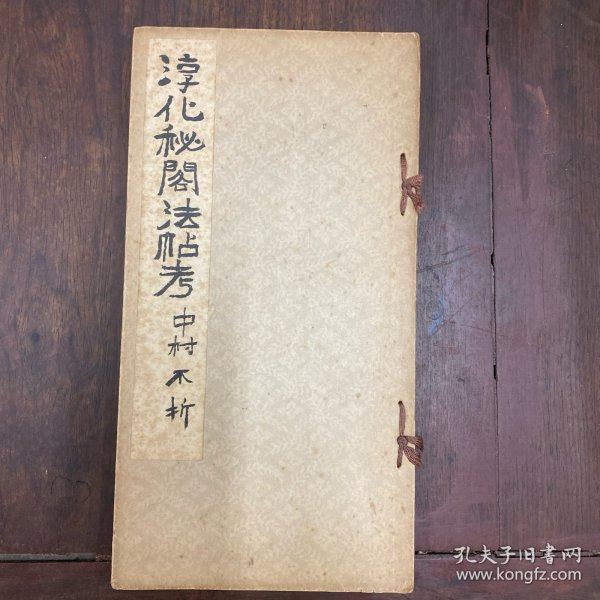 淳化秘閣法帖考
中村不折
孔夫子旧書网
www.kongfz.com